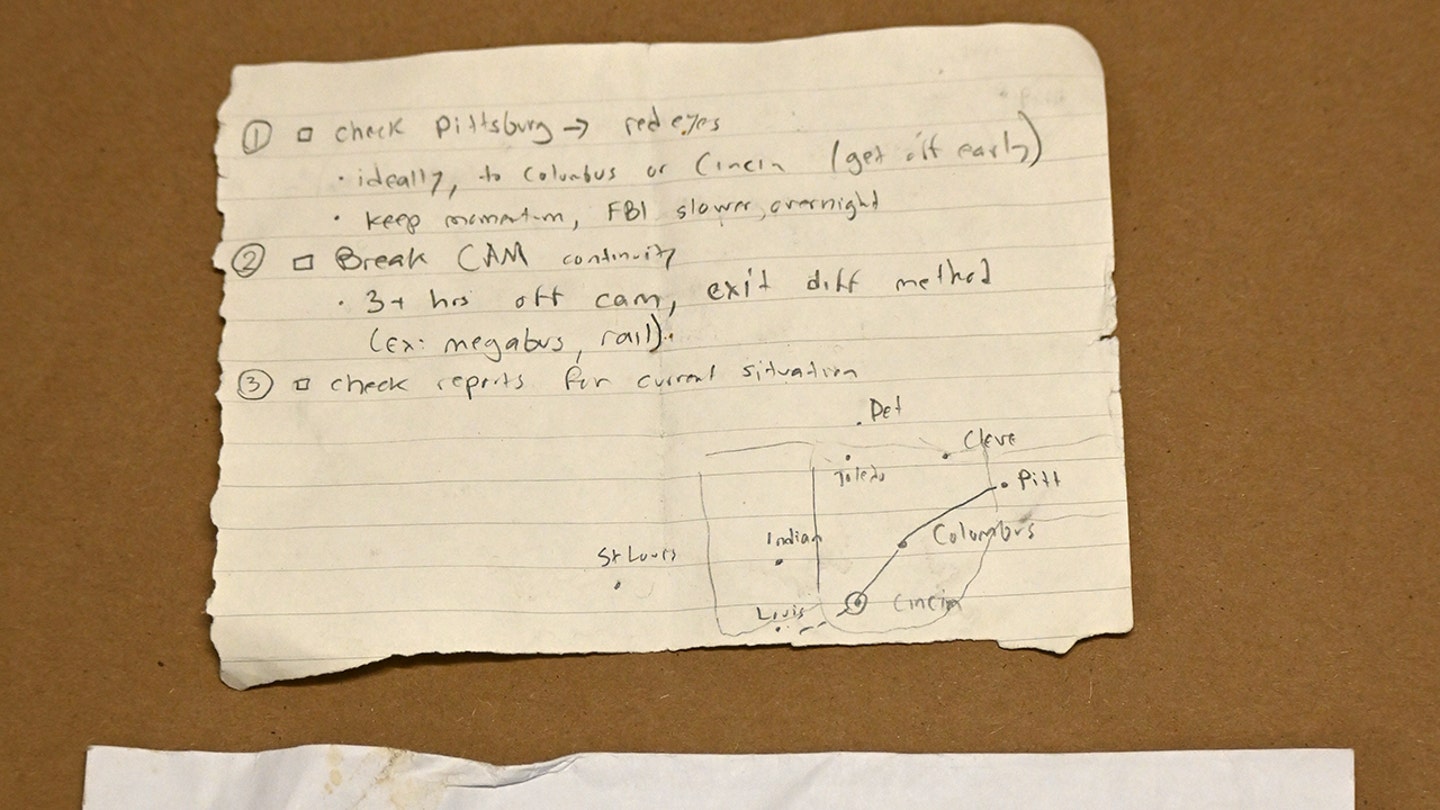 ① □ check Pittsburg → red eyes
• ideally, to Columbus or Cincin (get off early)
• keep momentum, FBI slower, overnight
② □ Break CAM continuity
• 3+ hrs off cam, exit diff method
(ex: megabus, rail).
③ □ check reports for current situation
Det
Cleve
Toledo
Pitt
Columbus
Indian
St Louis
Cincin
Louis